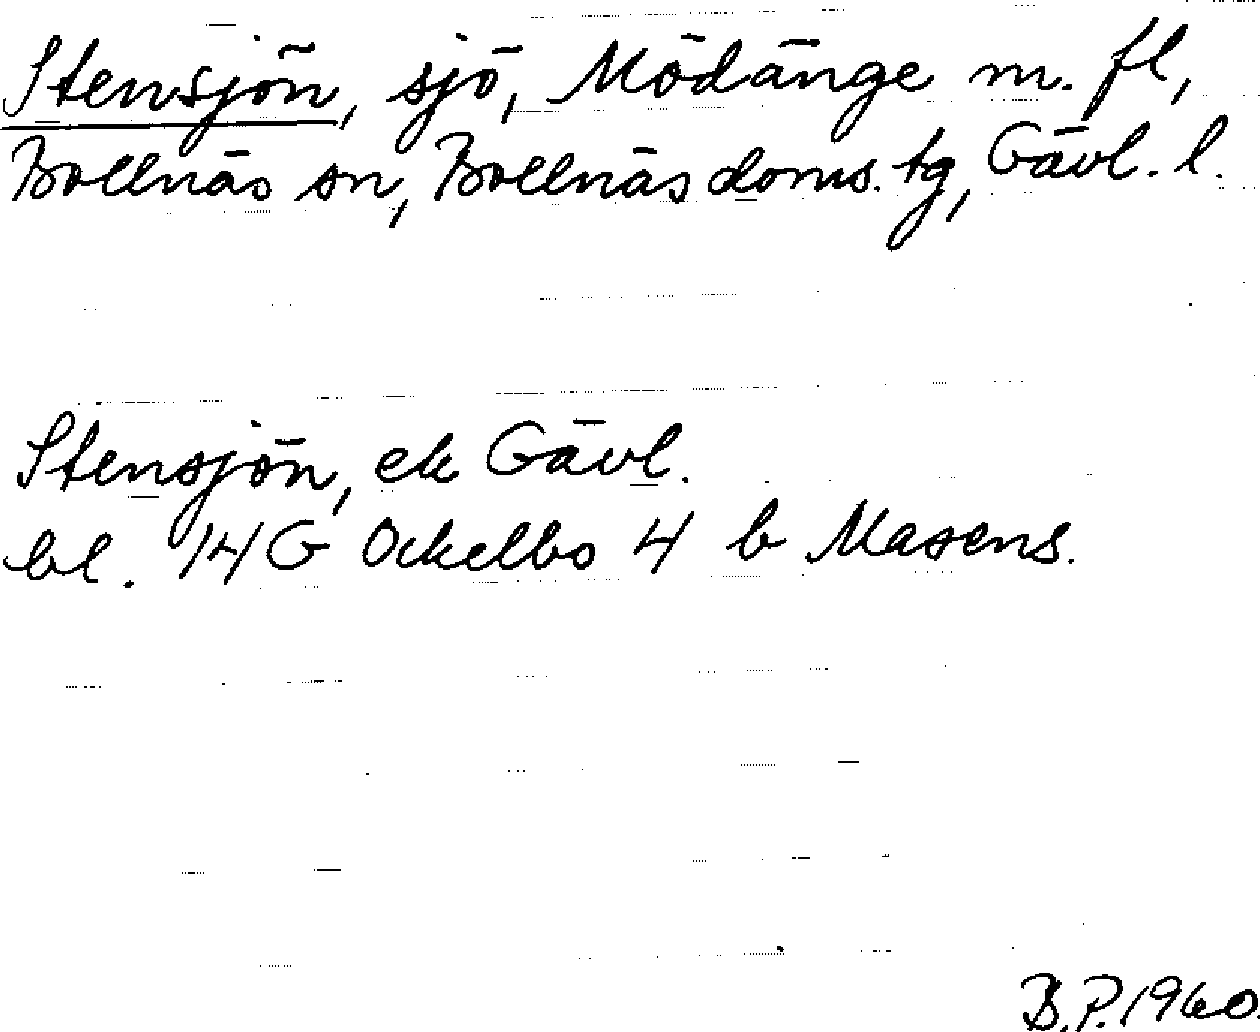 Stensjön, sjö, Mödänge m. fl,
Bollnäs sn, Bollnäs doms. tg, Gävl. l.
Stensjön, ek Gävl.
bl. 14 G Ockelbo 4 b Masens.
B.P. 1960